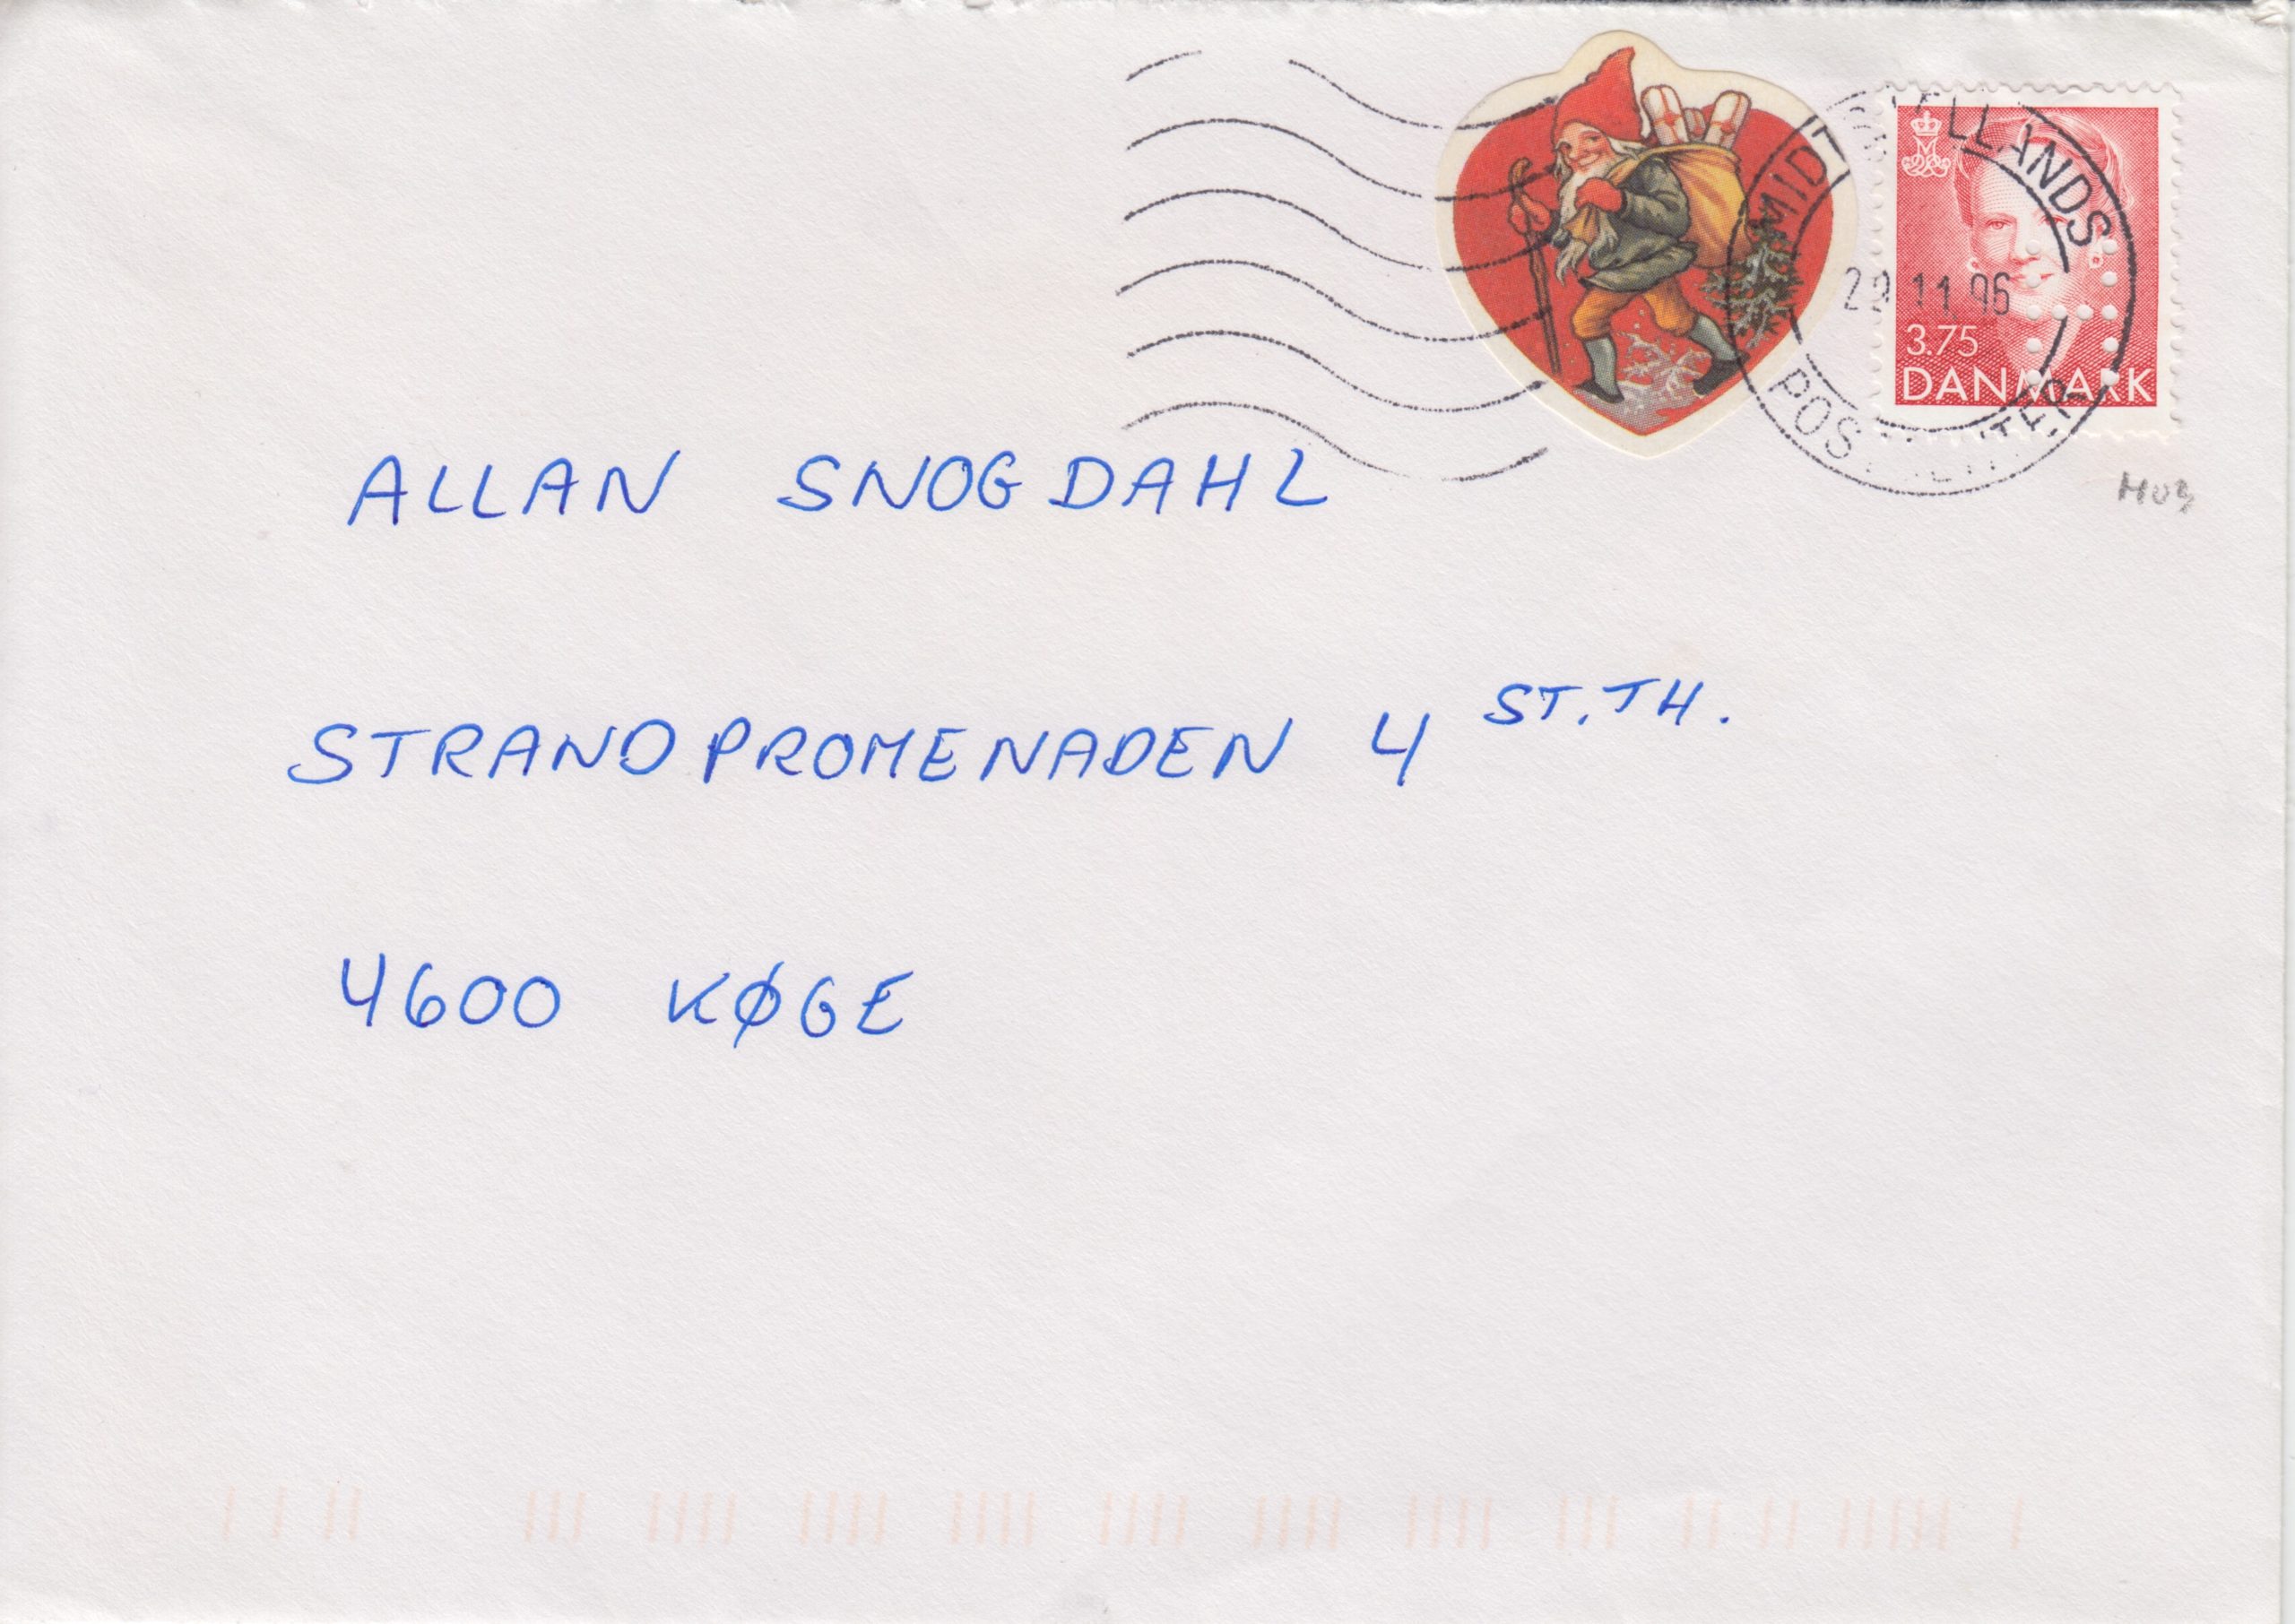 MIDTSJÆLLANDS
29.11.96
3.75
DANMARK
POSTCENTER
ALLAN SNOGDAHL
STRANDPROMENADEN 4 ST. TH.
4600 KØGE